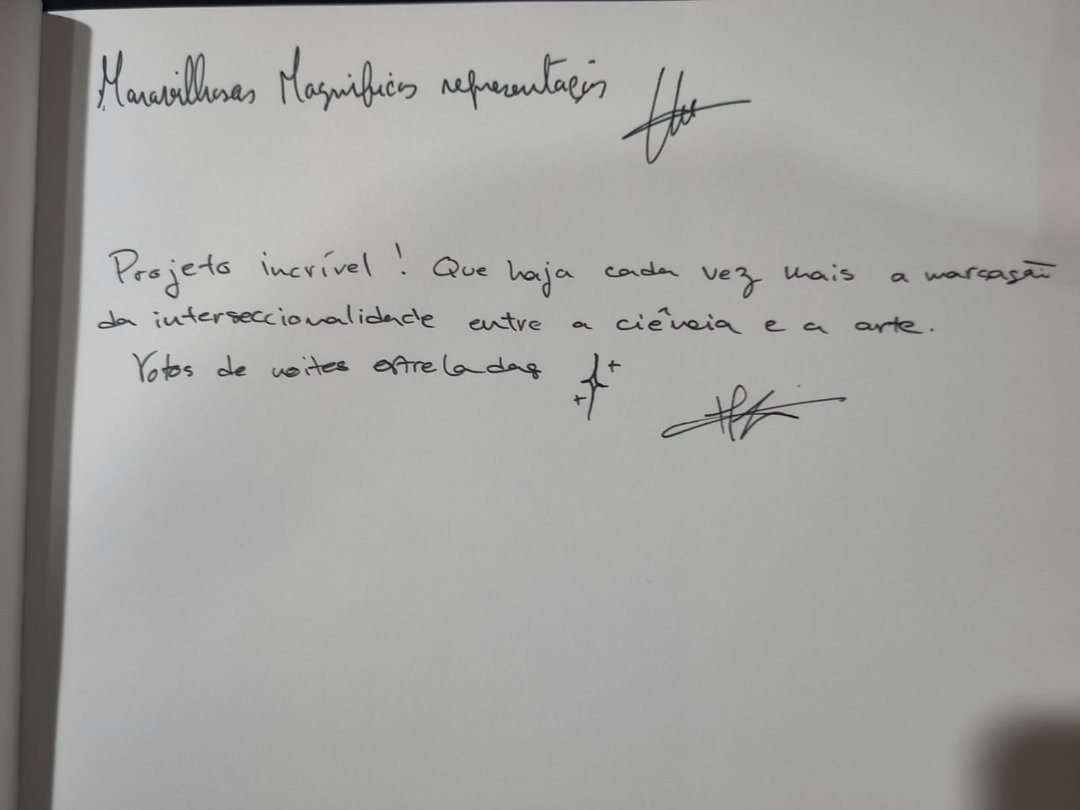 Maravilhosas Magníficas representações
Projeto incrível! Que haja cada vez mais a marcação
da interseccionalidade entre a ciência e a arte.
Votos de noites estreladas